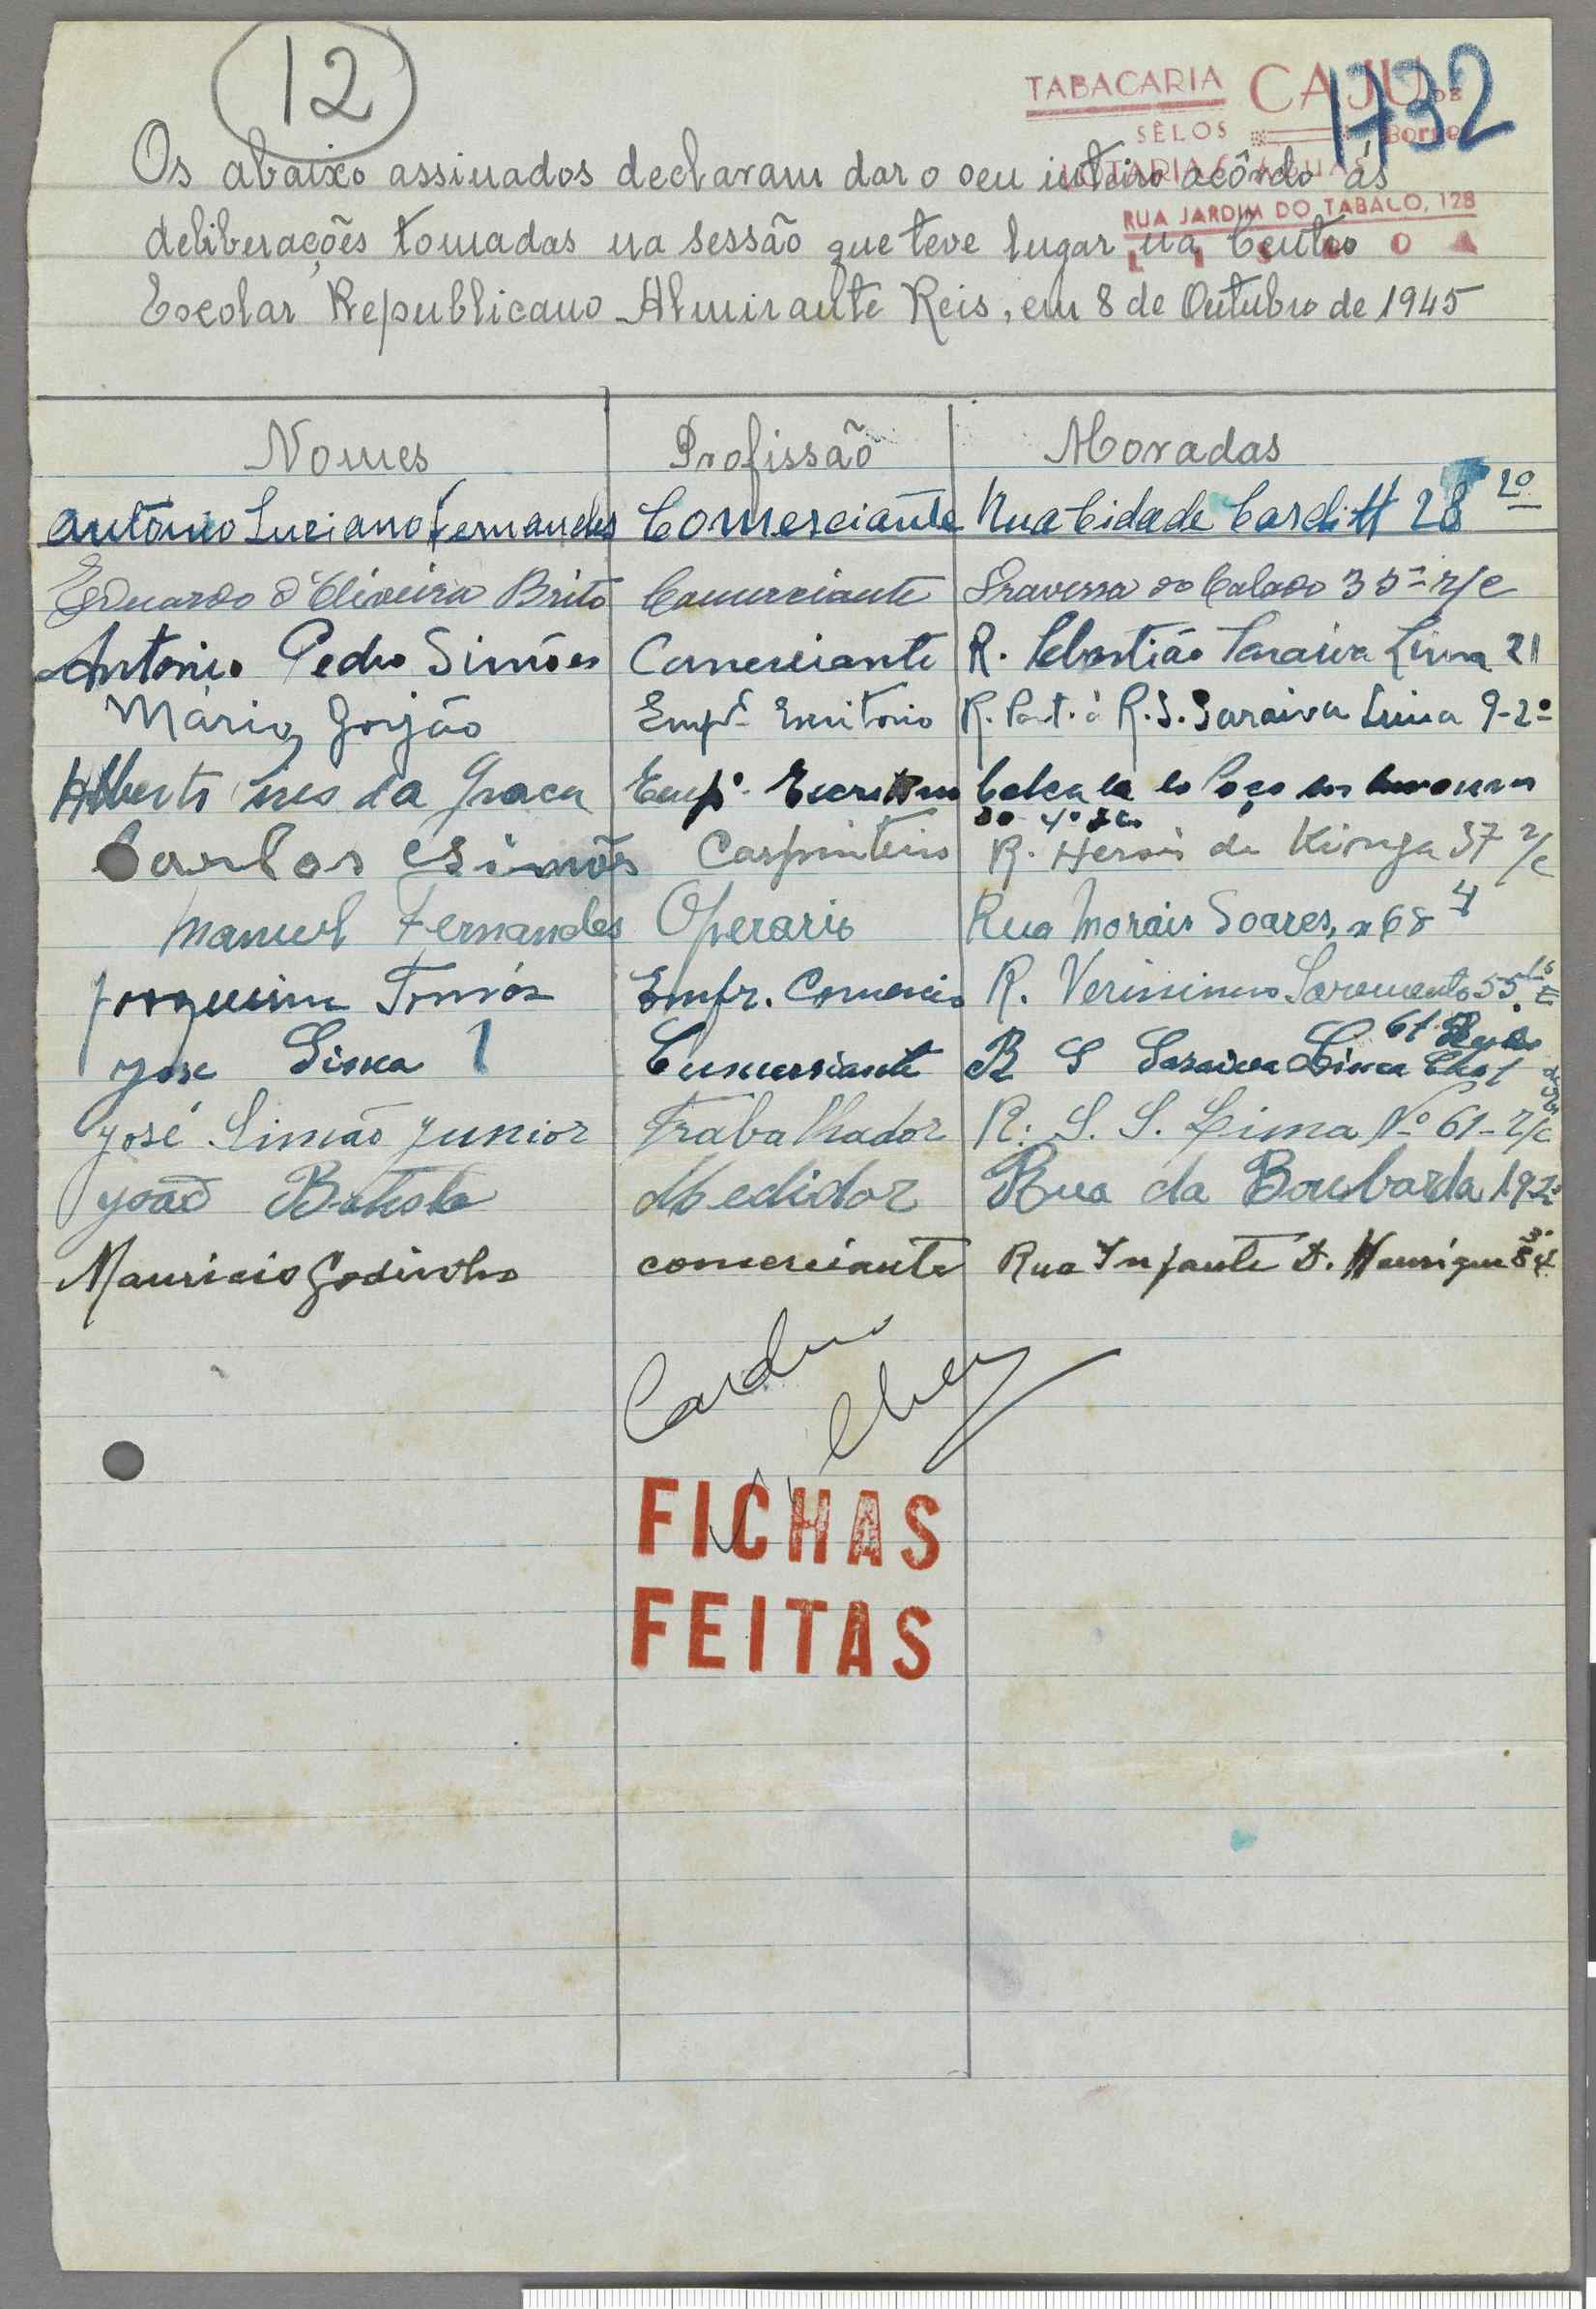 12
1732
TABACARIA CAJÚ DE
SÊLOS Borges
LOTARIAS
RUA JARDIM DO TABACO, 128
LISBOA
Os abaixo assinados declaram dar o seu inteiro acôrdo ás
deliberações tomadas na sessão que teve lugar na Centro
Escolar Republicano Almirante Reis, em 8 de Outubro de 1945
Nomes Profissão Moradas
António Luciano Fernandes Comerciante Rua Cidade Cardiff 28 2º
Eduardo d'Oliveira Brito Comerciante Travessa do Calado 35 r/c
Antonio Pedro Simões Comerciante R. Sebastião Saraiva Lima 21
Mário Gorjão Empº Escritorio R. Part. à R. S. Saraiva Lima 9-2º
Alberto Pires da Graça Empº Escritorio Calçada do Poço dos Mouros
30 4º
Carlos Simões Carpinteiro R. Herois de Kionga 37 r/c
Manuel Fernandes Operario Rua Morais Soares, n 68 4º
Joaquim Tomás Empr. Comercio R. Verissimo Sarmento 55
José Lima Cumersiante R S Saraiva Lima 61
José Simão Junior Trabalhador R. S. S. Lima Nº 61-r/c
João Batista Medidor Rua da Bombarda 19 2º
Mauricio Godinho comerciante Rua Infante D. Henrique 84 3º
FICHAS
FEITAS